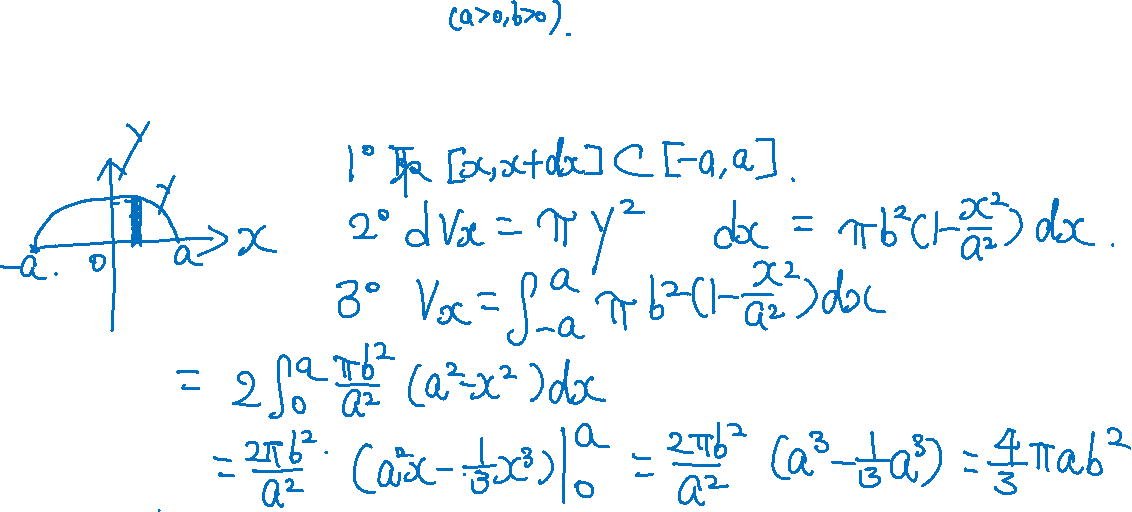 (a>0,b>0).
y
y
-a. 0 a x
1° 取 [x,x+dx]⊂[-a,a].
2° dVx = πy² dx = πb²(1-x²/a²)dx.
3° Vx = ∫_{-a}^{a} πb²(1-x²/a²)dx
= 2∫_0^a πb²/a² (a²-x²)dx
= 2πb²/a² · (a²x-1/3x³)|_0^a = 2πb²/a² (a³-1/3a³) = 4/3πab²